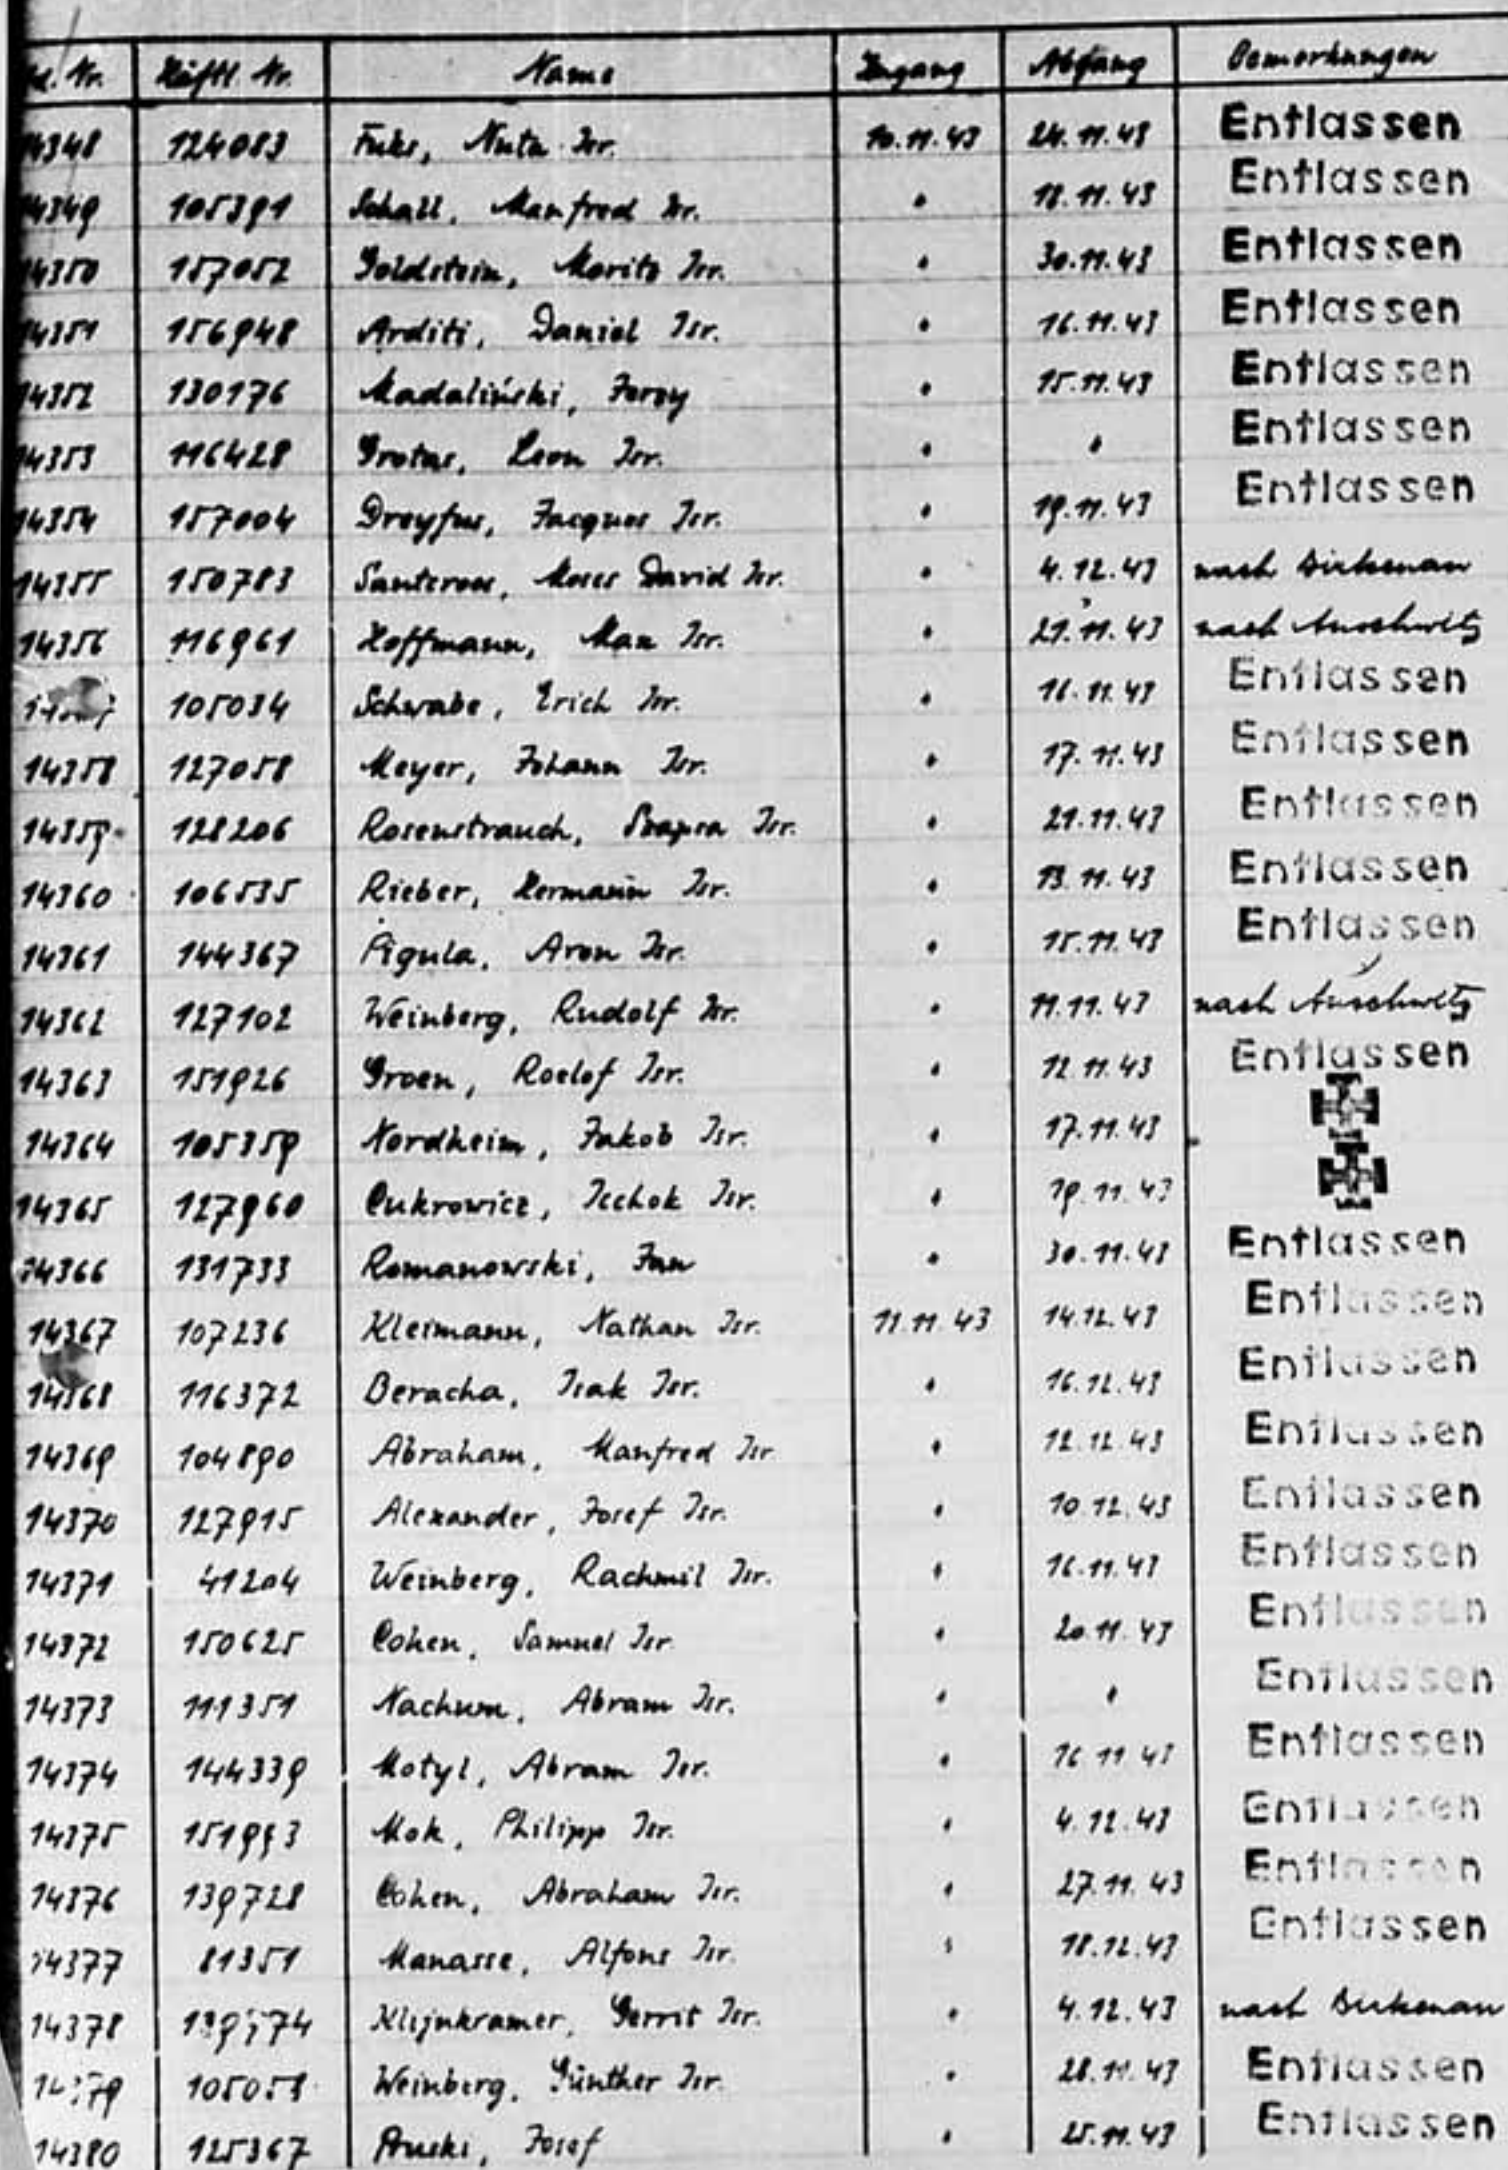 Nr. Häftl. Nr. Name Zugang Abgang Bemerkungen
14348 124083 Fuks, Nuta Isr. 10.11.43 24.11.43 Entlassen
14349 105391 Schall, Manfred Isr. " 18.11.43 Entlassen
14350 157052 Goldstein, Moritz Isr. " 30.11.43 Entlassen
14351 156948 Arditi, Daniel Isr. " 16.11.43 Entlassen
14352 130176 Madaliński, Jerzy " 15.11.43 Entlassen
14353 116428 Grotas, Leon Isr. " " Entlassen
14354 157004 Dreyfus, Jacques Isr. " 19.11.43 Entlassen
14355 150783 Santcroos, Moses David Isr. " 4.12.43 nach Birkenau
14356 116961 Hoffmann, Max Isr. " 21.11.43 nach Auschwitz
105034 Schwabe, Erich Isr. " 16.11.43 Entlassen
14358 127058 Meyer, Johann Isr. " 17.11.43 Entlassen
14359 128206 Rosenstrauch, Szapsa Isr. " 21.11.43 Entlassen
14360 106535 Rieber, Hermann Isr. " 13.11.43 Entlassen
14361 144367 Pigula, Aron Isr. " 15.11.43 Entlassen
14362 127102 Weinberg, Rudolf Isr. " 11.11.43 nach Auschwitz
14363 151926 Groen, Roelof Isr. " 12.11.43 Entlassen
14364 105359 Nordheim, Jakob Isr. " 17.11.43
14365 127960 Cukrowicz, Icchok Isr. " 19.11.43
14366 131733 Romanowski, Jan " 30.11.43 Entlassen
14367 107236 Kleimann, Nathan Isr. 11.11.43 14.12.43 Entlassen
14368 116372 Beracha, Isak Isr. " 16.12.43 Entlassen
14369 104890 Abraham, Manfred Isr. " 12.12.43 Entlassen
14370 127915 Alexander, Josef Isr. " 10.12.43 Entlassen
14371 41204 Weinberg, Rachmil Isr. " 16.11.43 Entlassen
14372 150625 Cohen, Samuel Isr. " 20.11.43 Entlassen
14373 111351 Nachum, Abram Isr. " " Entlassen
14374 144339 Motyl, Abram Isr. " 16.11.43 Entlassen
14375 151993 Mok, Philipp Isr. " 4.12.43 Entlassen
14376 139728 Cohen, Abraham Isr. " 27.11.43 Entlassen
14377 81351 Manasse, Alfons Isr. " 18.12.43 Entlassen
14378 Klijnkramer, Gerrit Isr. " 4.12.43 nach Birkenau
14379 105058 Weinberg, Günther Isr. " 28.11.43 Entlassen
14380 125367 Josef " 25.11.43 Entlassen